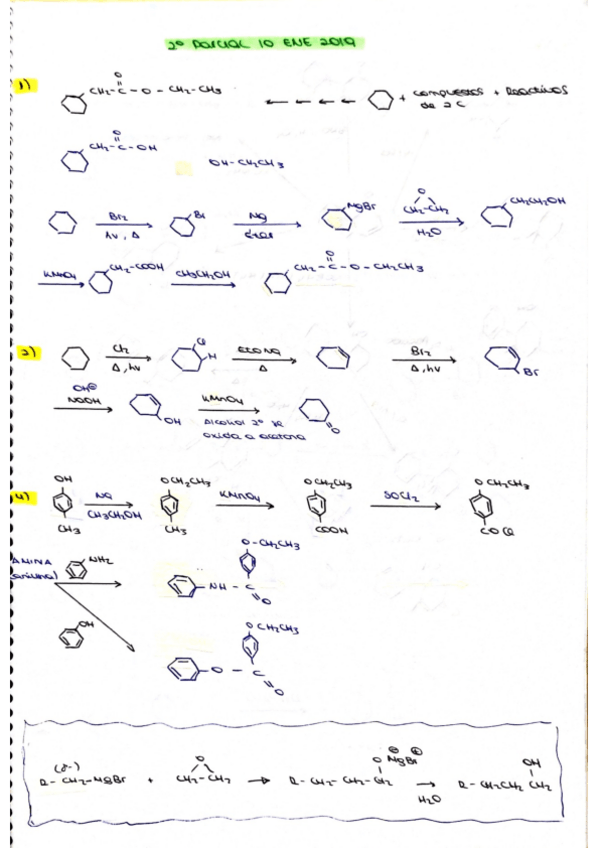 2º PARCIAL 10 ENE 2019
1)
CH2-C-O-CH2-CH3
O
+ compuestos + Reactivos
de 2C
CH2-C-OH
O
OH-CH2CH3
Br2
hν, Δ
Br
Mg
éter
MgBr
O
CH2-CH2
H2O
CH2CH2OH
KMnO4
CH2-COOH
CH3CH2OH
CH2-C-O-CH2CH3
O
2)
Cl2
Δ, hν
Cl
H
EtONa
Δ
Br2
Δ, hν
Br
OH⊖
NaOH
OH
KMnO4
Alcohol 2º se
oxida a cetona
O
4)
OH
CH3
Na
CH3CH2OH
OCH2CH3
CH3
KMnO4
OCH2CH3
COOH
SOCl2
OCH2CH3
COCl
AMINA
(anilina)
NH2
O-CH2CH3
NH - C
O
OH
OCH2CH3
O - C
O
(δ-)
R-CH2-MgBr + CH2-CH2
O
R-CH2-CH2-CH2
O⊖ MgBr⊕
H2O
R-CH2CH2 CH2
OH